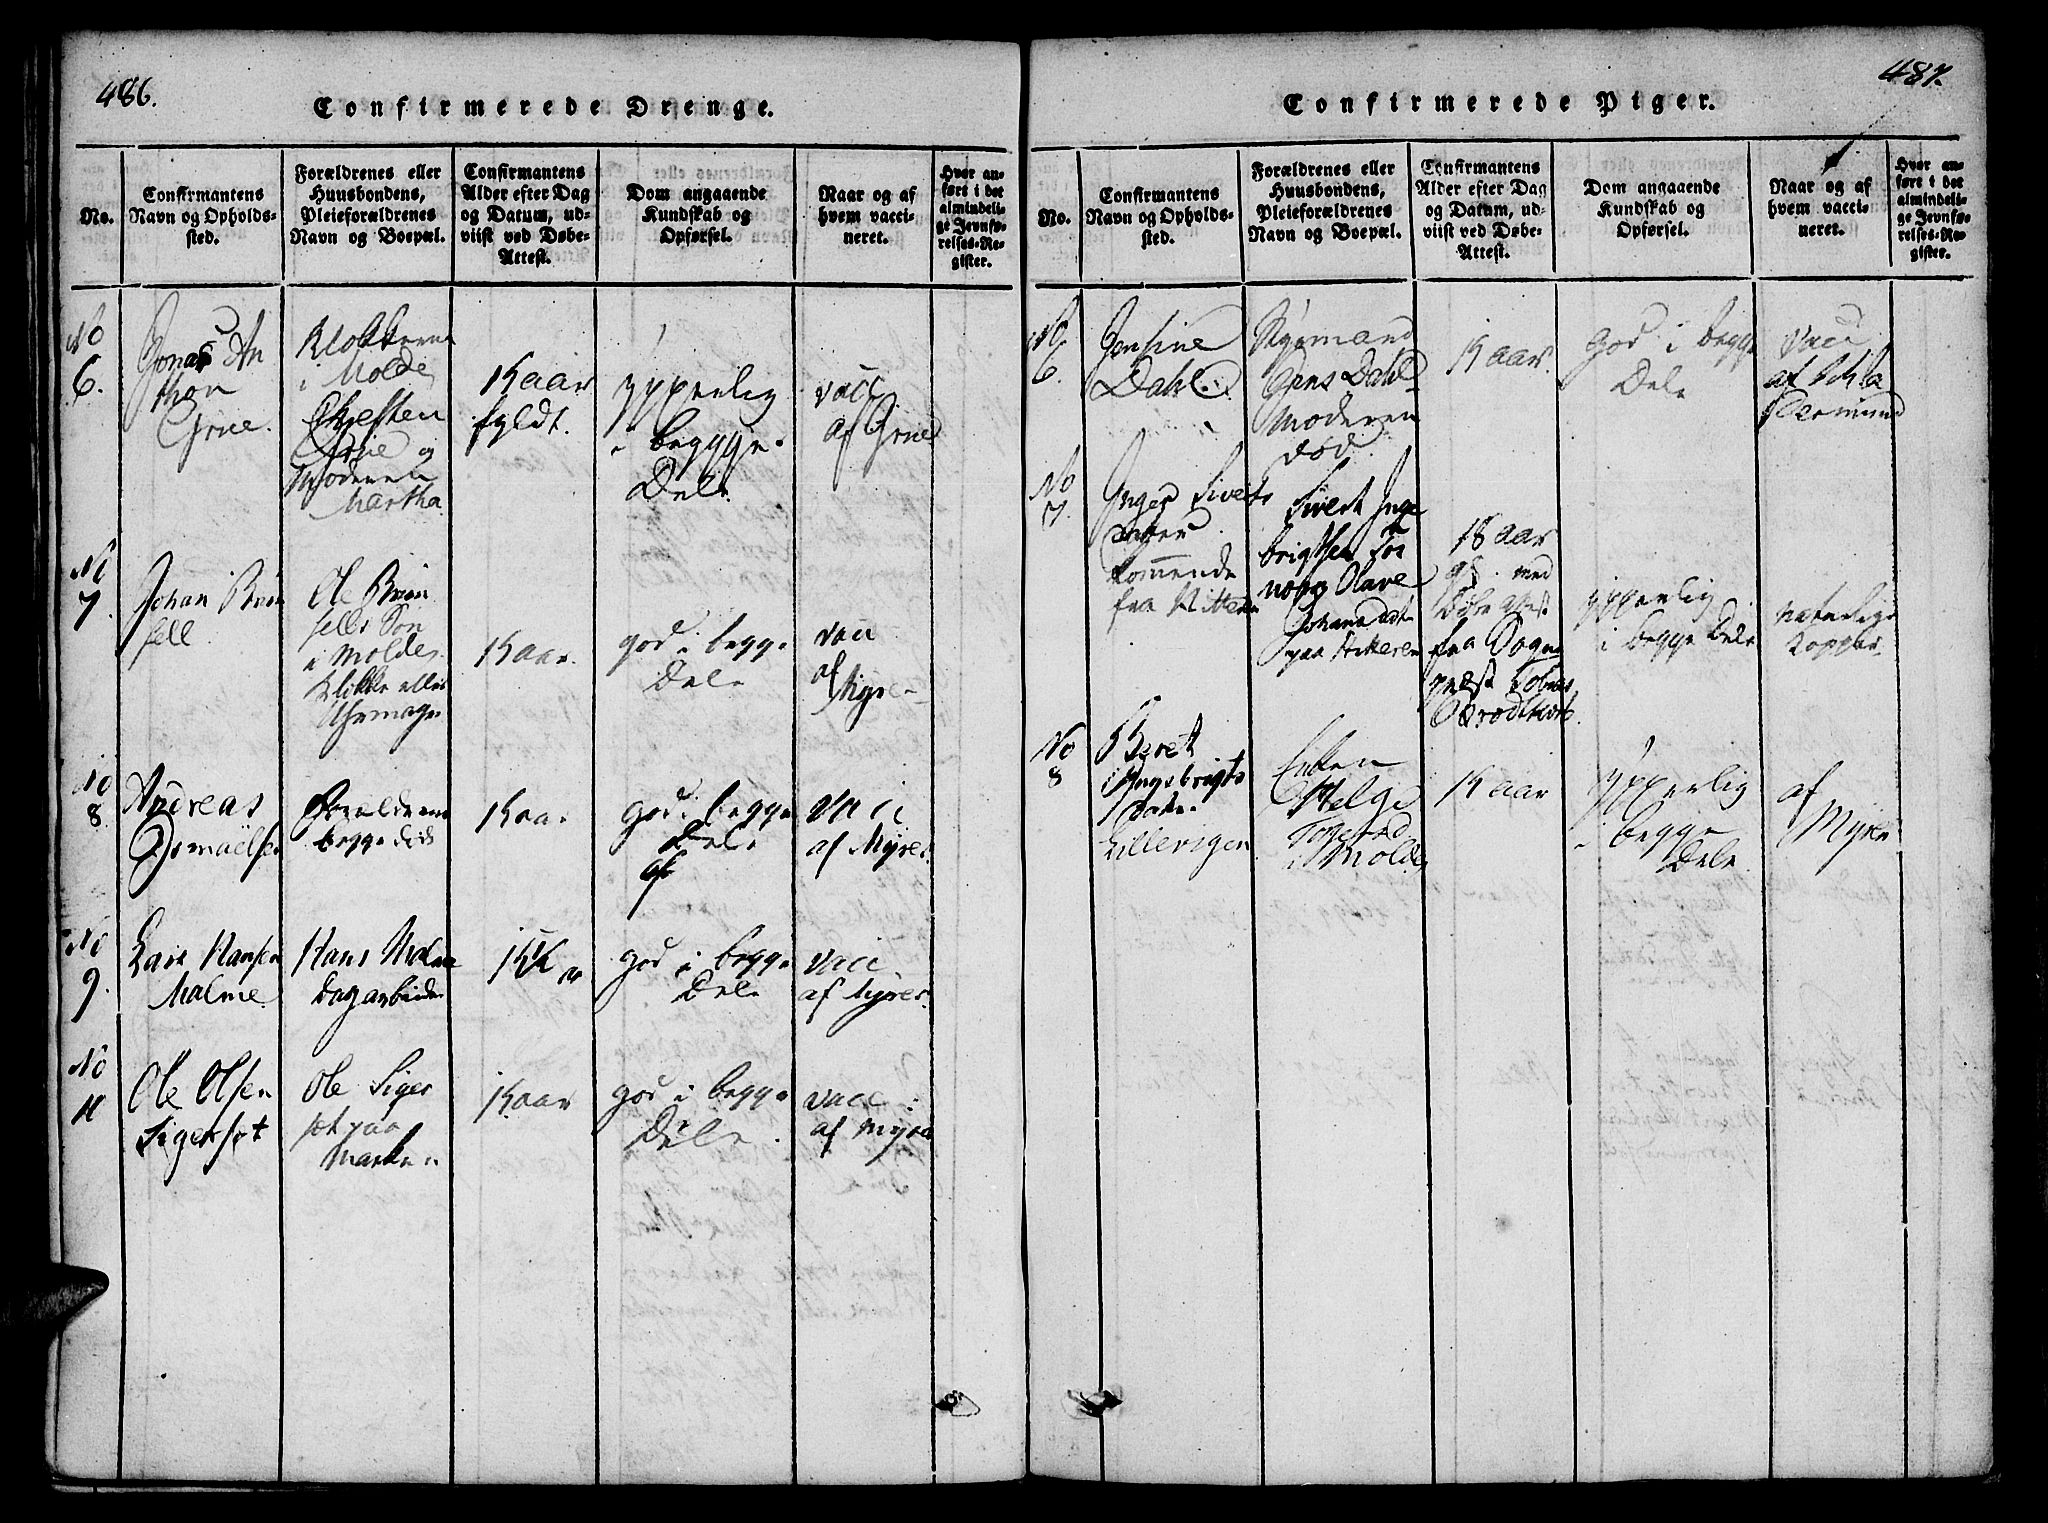 486.
Confirmerede Drenge.
No.
Confirmantens
Navn og Opholds-
sted.
Forældrenes eller
Huusbondens,
Pleieforældrenes
Navn og Boepæl.
Confirmantens
Alder efter Dag
og Datum, ud-
viist ved Døbe-
Attest.
Dom angaaende
Kundskab og
Opførsel.
Naar og af
hvem vacci-
neret.
Hvor an-
ført i det
almindeli-
ge Jevnfø-
relses-Re-
gister.
No
6.
Jonas An
thon
Grue.
Klokkeren
i Molde
Christen
Grue og
Moderen
Martha
15 aar
fyldt.
ypperlig
i begge
Dele
vacc
af Grue
No
7.
Johan Brun
fell
Ole Brun
fells Søn
i Molde
15 aar.
god i begge
Dele
vacc
af
Myre
No
8
Andreas
Ismaëlsen
Forældrene
begge døde
15 aar
god i begge
Dele
vacc
af Myre
No
9.
Lars Hansen
Malme
Hans Malme
Dagarbeider
god i begge
Dele
vacc
af Myre
No
Ole Olsen
Sigerset
Ole Siger
set paa
Marken
15 aar
god i begge
Dele
vacc
af Myre
487.
Confirmerede Piger.
No.
Confirmantens
Navn og Opholds-
sted.
Forældrenes eller
Huusbondens,
Pleieforældrenes
Navn og Boepæl.
Confirmantens
Alder efter Dag
og Datum, ud-
viist ved Døbe-
Attest.
Dom angaaende
Kundskab og
Opførsel.
Naar og af
hvem vacci-
neret.
Hvor an-
ført i det
almindeli-
ge Jevnfø-
relses-Re-
gister.
No
6.
Jensine
Dahl
Styrmand
Jens Dahl
Moderen
død
15 aar.
god i begge
Dele
vacc
af
No
7.
Inger Siverts
datter
kommende
fra Hitteren
Sivert Inge
brigtsen
Olave
Johansdat
paa Hitteren
18 aar
med
Døbe Attest
fra Sogne
præst
ypperlig
i begge Dele
naturlige
Kopper
No
8
Beret
Ingebrigts
Datter
Lillevigen
Enken
Helge
i Molde
15 aar
ypperlig
i begge
Dele
af
Myre